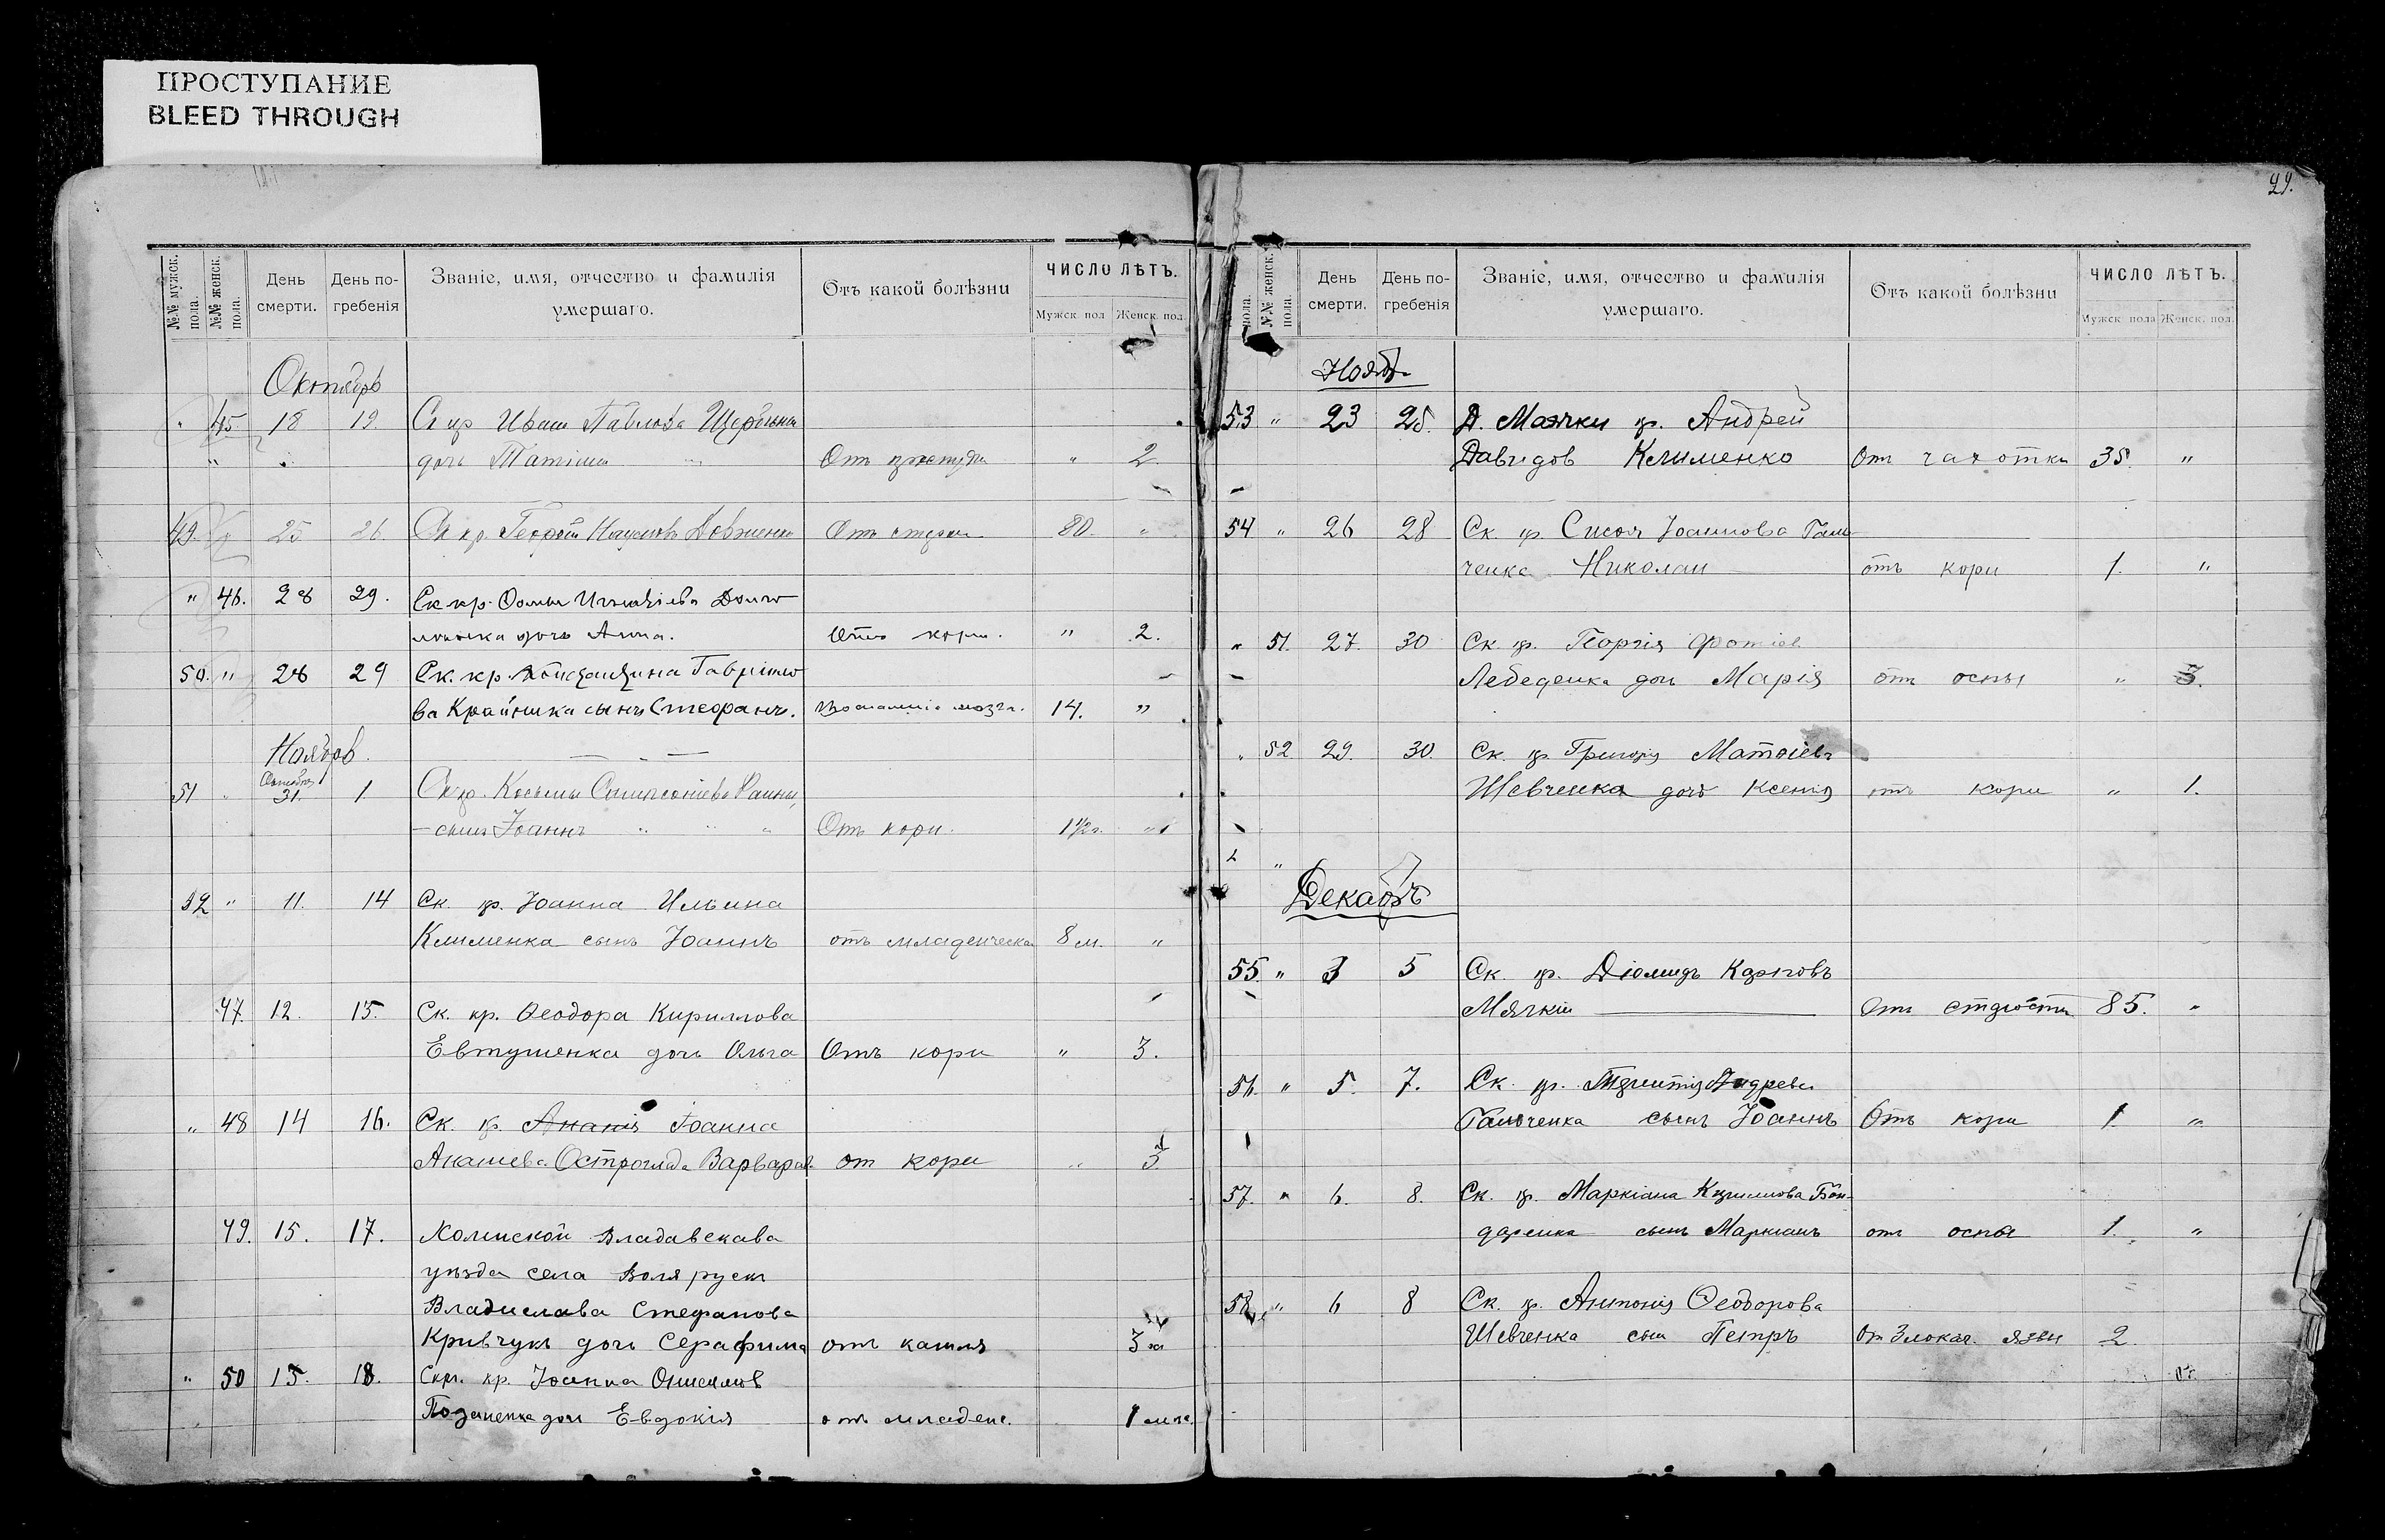 ПРОСТУПАНИЕ
BLEED THROUGH
29.
№№ мужск. пола. №№ женск. пола. День смерти. День погребенія Званіе, имя, отчество и фамилія умершаго. Отъ какой болѣзни ЧИСЛО ЛѢТЪ. Мужск. пол Женск. пол.
Октябрь
" 45 18 19. Ск кр Иван Павлова Щербина
" дочь Татіана " Отъ простуды " 2.
49. 25 26 Ск кр. Георгій Наумовъ Довженко Отъ старости 80. "
" 46. 28 29. Ск кр. Ѳомы
дочь Анна. Отъ кори. " 2.
50. " 28 29 Ск. кр. Константина Гаврiило
ва Крайника сынъ Стефанъ. мозга. 14. "
Ноябрь.
Октября
51 " 31. 1. Ск кр. Косьмы
сынъ Іоаннъ " " " Отъ кори. 1 1/2 г. "
52 " 11. 14 Ск. кр. Іоанна Ильина
Клименка сынъ Іоаннъ отъ младенческа 8 м. "
47. 12. 15. Ск. кр. Ѳеодора Кириллова
Евтушенка дочь Ольга Отъ кори " 3.
" 48 14 16. Ск. кр. Ананія Іоанна
Остроглада Варвара от кори " 3
49. 15. 17. Холмской Владавскава
уѣзда села Воля руск
Владислава Стефанова
Кривчукъ дочь Серафима отъ кашля 3 м
" 50 15. 18. Скр. кр. Іоанна
дочь Евдокія отъ младенч. 1 мѣс.
пола. №№ женск. пола. День смерти. День погребенія Званіе, имя, отчество и фамилія умершаго. Отъ какой болѣзни ЧИСЛО ЛѢТЪ. Мужск. пола Женск. пол.
Ноябр.
53 " 23 25. Д. Мачки кр. Андрей
Давидов Клименко Отъ чахотки 35. "
54 " 26 28 Ск. кр. Сисоя Іоаннова Галь
ченка Николай отъ кори 1. "
" 51. 27. 30 Ск. кр. Георгія Фотіев
Лебеденка дочь Марія отъ оспы " 3.
" 52 29. 30. Ск. кр. Григорія Матвіева
Шевченка дочь Ксенія отъ кори " 1.
"
Декабрь
55. " 3 5 Ск. кр. Діомидъ Карповъ
Мячкій Отъ старости 85. "
56. " 5. 7. Ск. кр. Терентія Андреева
Гальченка сынъ Іоаннъ Отъ кори 1. "
57. " 6. 8. Ск. кр. Маркіана Кириллова Бон-
даренка сынъ Маркіанъ отъ оспы 1. "
58. " 6 8 Ск. кр. Антонія Ѳеодорова
Шевченка сын Петръ От Злокач. язвы 2.